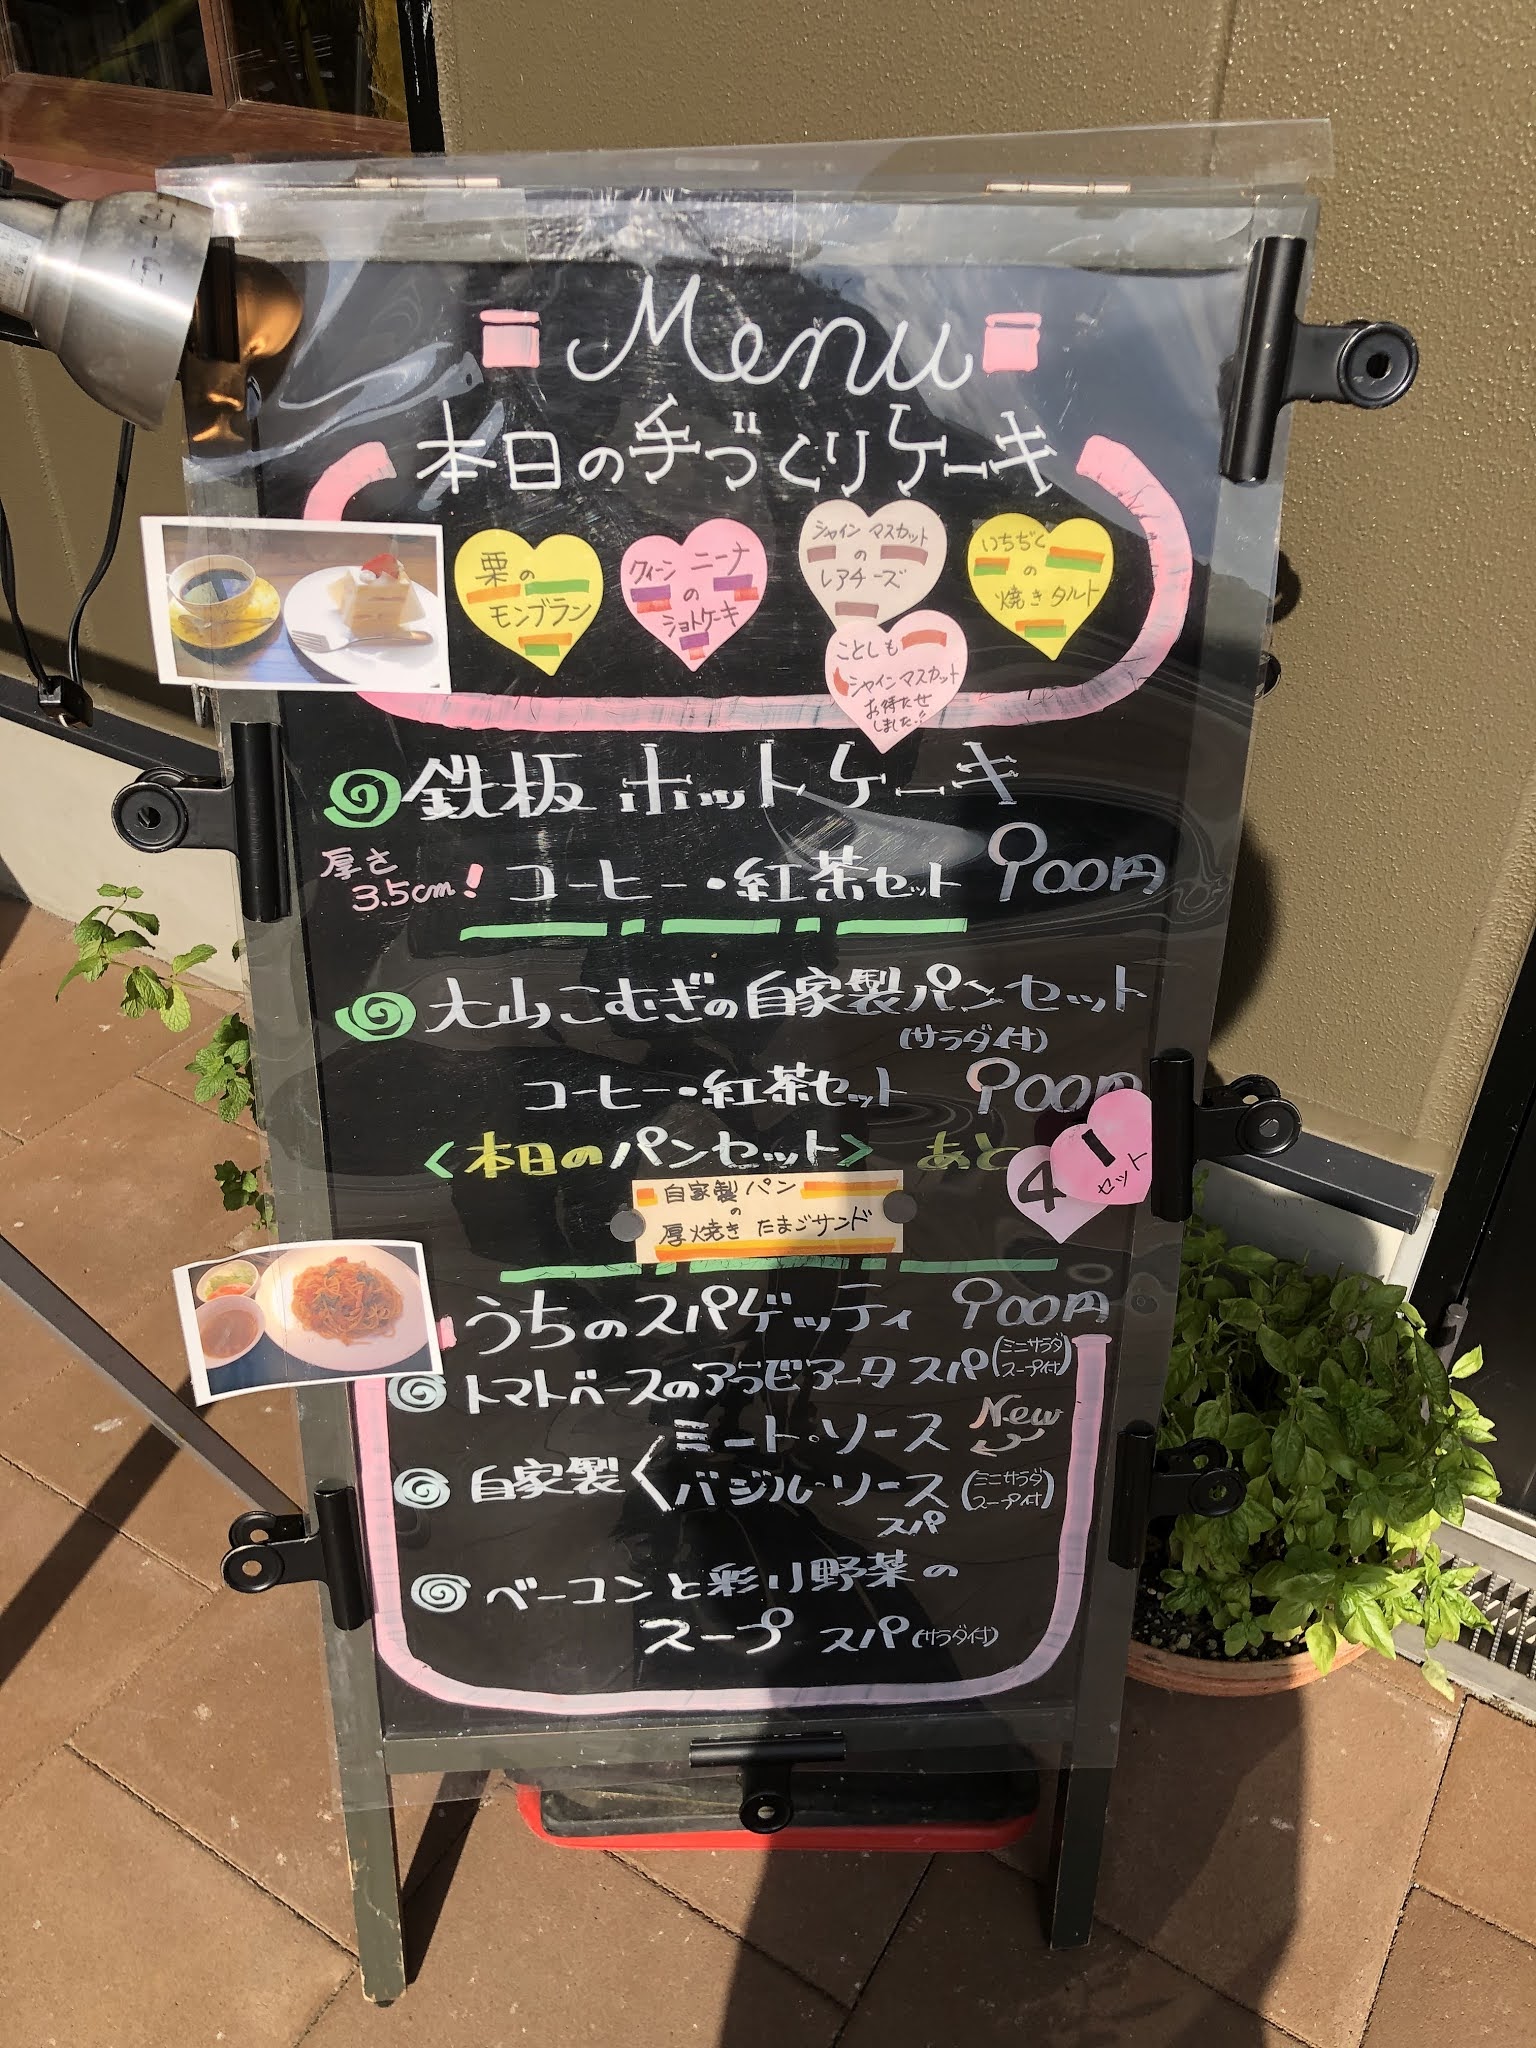 Menu
本日の手づくりケーキ
栗の
モンブラン
クィーンニーナ
の
ショトケーキ
シャインマスカット
の
レアチーズ
いちぢく
の
焼きタルト
ことしも
シャインマスカット
お待たせ
しました!!
鉄板ホットケーキ
厚さ
3.5cm!
コーヒー・紅茶セット 900円
大山こむぎの自家製パンセット
(サラダ付)
コーヒー・紅茶セット 900円
<本日のパンセット> あと
4
1
セット
自家製パン
の
厚焼きたまごサンド
うちのスパゲッティ 900円
トマトベースのアラビアータスパ(ミニサラダ
スープ付)
ミート・ソース New
自家製<バジル・ソース(ミニサラダ
スープ付)
スパ
ベーコンと彩り野菜の
スープ スパ(サラダ付)